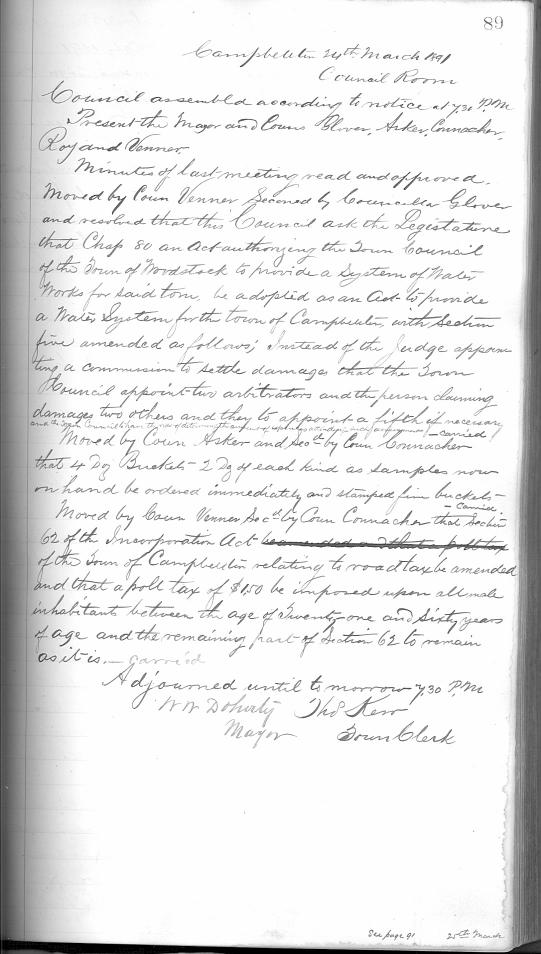 89
Campbellton 24th March 1891
Council Room
Council assembled according to notice at 7.30 P.M
Present the Mayor and Couns Glover, Asker, Connacher,
Roy and Venner.
Minutes of last meeting read and approved.
Moved by Coun Venner Seconed by Councilor Glover
and resolved that this Council ask the Legislature
that Chap 80 an Act authorizing the Town Council
of the Town of Woodstock to provide a System of Water
Works for said town, be adopted as an Act to provide
a Water System for the town of Campbellton, with Section
five amended as follows; Instead of the Judge appoin
ting a commission to settle damages that the Town
Council appoint two arbitrators and the person claiming
damages two others and they to appoint a fifth if necessary
and the Town Council have the
– carried
Moved by Coun Asker and Secd by Coun Connacher
that 4 Doz Buckets – 2 Dz of each kind as samples now
on hand be ordered immediately and stamped fire buckets –
– carried
Moved by Coun Venner Secd by Coun Connacher that Section
62 of the Incorporation Act be amended and that a poll tax
of the Town of Campbellton relating to road tax be amended
and that a poll tax of $1.50 be imposed upon all male
inhabitants between the age of Twenty-one and Sixty years
of age and the remaining part of Section 62 to remain
as it is. – carried
Adjourned until to morrow 7.30 P.M
W W Doherty Thos Kerr
Mayor Town Clerk
See page 91 25th March